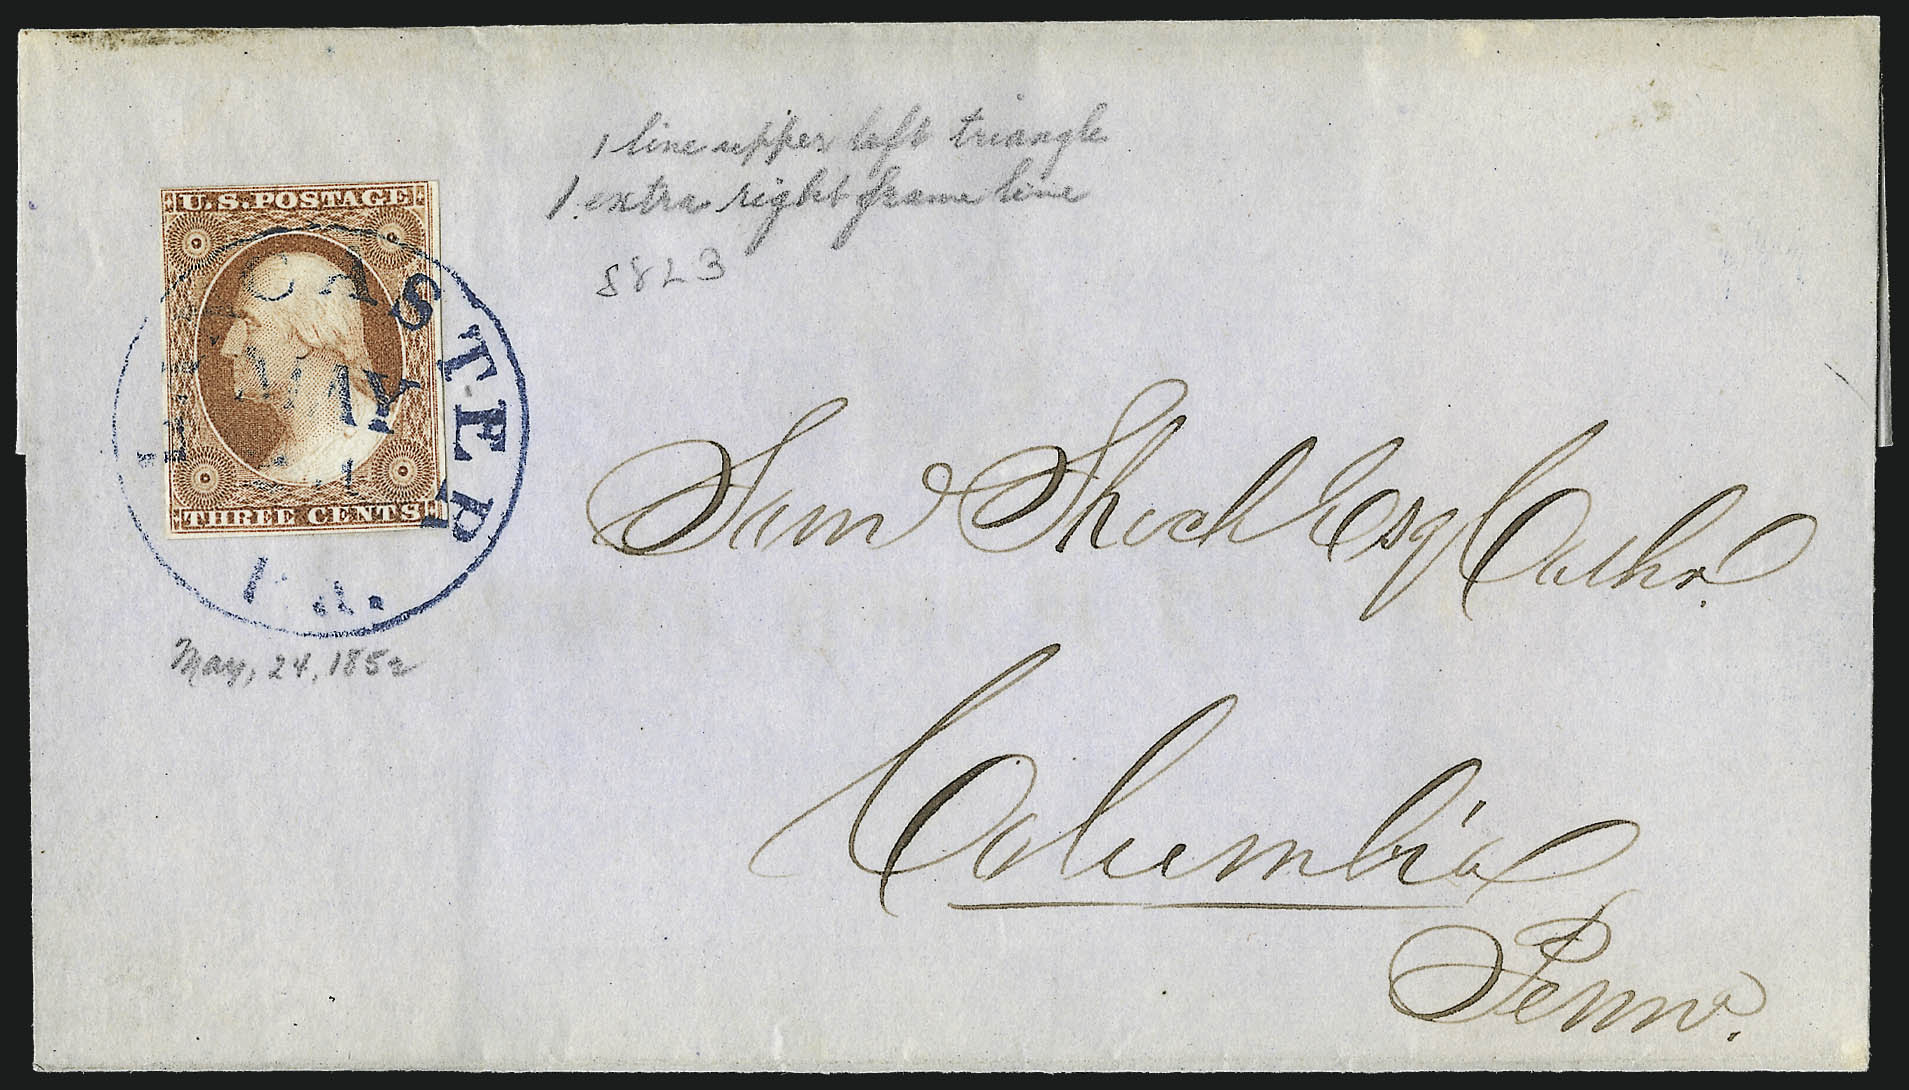 1 line upper left triangle
1 extra right frame line
S8L3
U.S. POSTAGE
LANCASTER
MAY
THREE CENTS
Pa.
May, 24, 1852
Saml Shoch Esq Cashr.
Columbia
Penna.